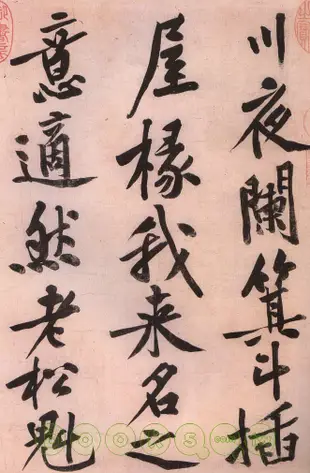 川夜阑箕斗插
屋椽我来名之
意適然老松魁